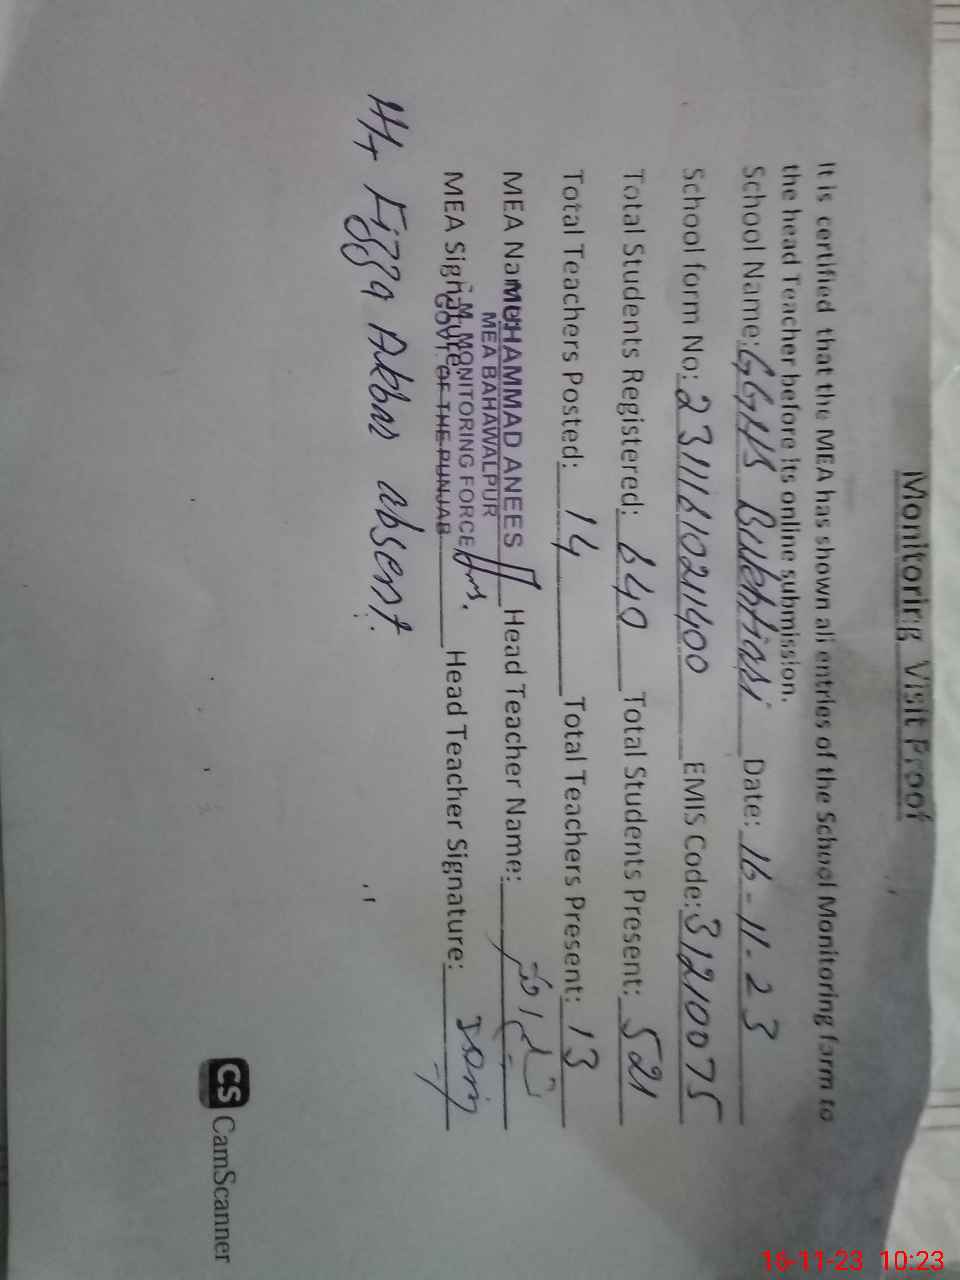 Monitoring Visit Proof
It is certified that the MEA has shown all entries of the School Monitoring form to
the head Teacher before its online submission.
School Name: GGHS Bukhtiari Date: 16-11-23
School form No: 23111161021400 EMIS Code: 31210075
Total Students Registered: 640 Total Students Present: 521
Total Teachers Posted: 14 Total Teachers Present: 13
MEA Name: MUHAMMAD ANEES Head Teacher Name:
MEA BAHAWALPUR
M. MONITORING FORCE
GOVT OF THE PUNJAB
MEA Signature: Head Teacher Signature:
Fizza Akbar absent.
CS CamScanner
16-11-23 10:23